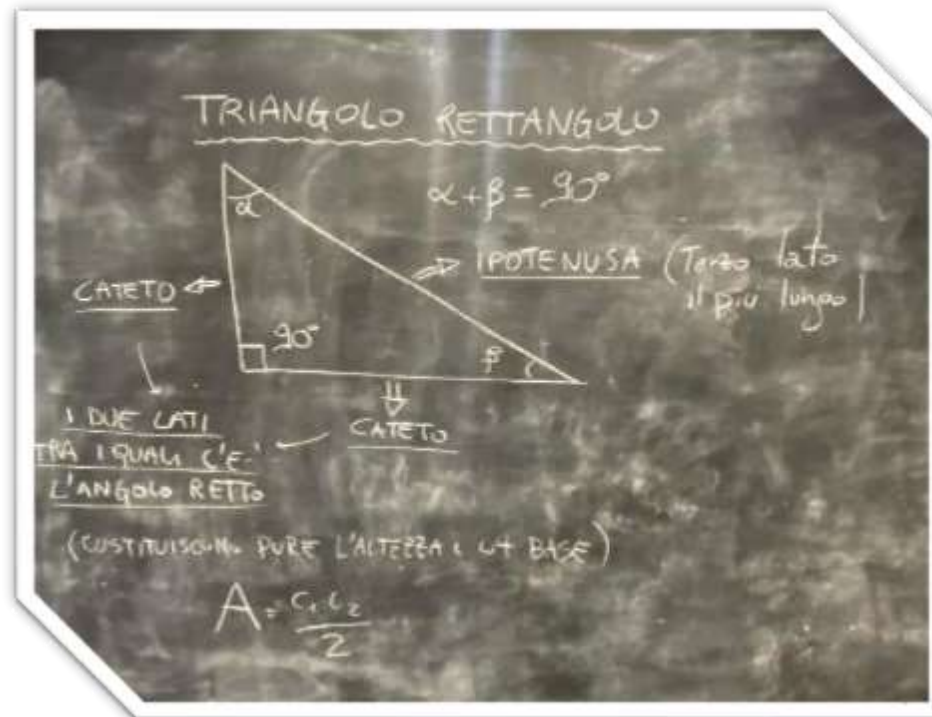 TRIANGOLO RETTANGOLO
α
α+β = 90°
IPOTENUSA (Terzo lato
il più lungo)
CATETO
90°
β
I DUE LATI
TRA I QUALI C'E'
L'ANGOLO RETTO
CATETO
(COSTITUISCONO PURE L'ALTEZZA E LA BASE)
A = C₁·C₂
2